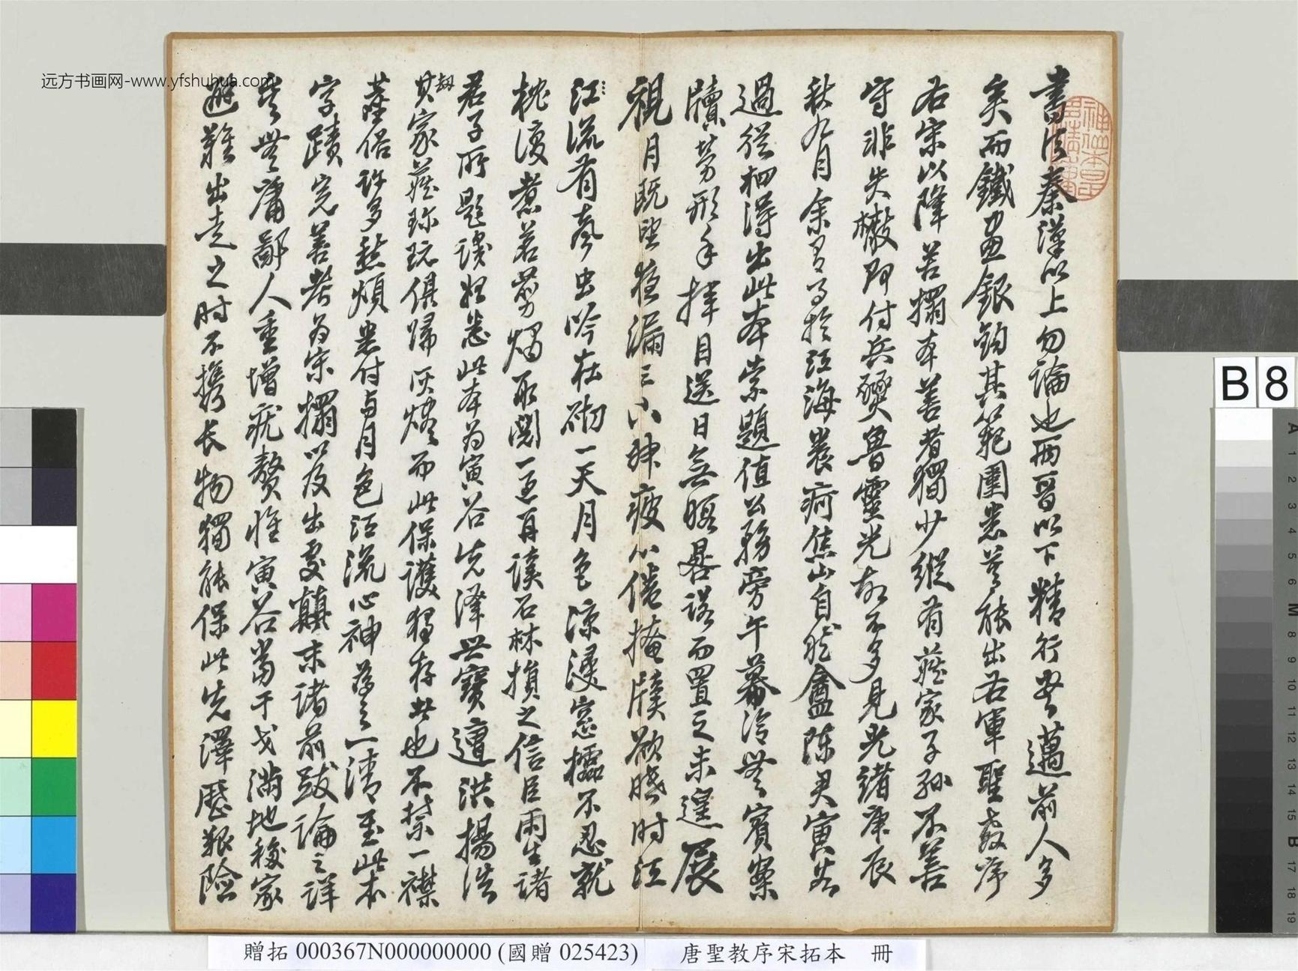 書法秦漢以上勿論也兩晉以下精行書邁前人多
矣而鐵畫銀鉤其範圍悉不能出右軍聖教序
右宋以降若搨本善者獨少縱有藏家子孫不善
守非失檢即付兵燹魯靈光故不多見光緒庚辰
秋九月余曾可於江海養疴焦山自然盦陳君寅谷
過從袖得出此本索題值公務旁午幕冷無賓案
牘勞形手揮目送日無暇晷諾而置之未遑展
視月既望夜漏三下神疲心倦掩牘欲睡時江
江流有聲虫吟在砌一天月色涼浸窗櫺不忍就
枕復煮茗剪燭取閱一至再讀石林損之信臣雨生諸
君子所題識知悉此本為寅谷先澤世寶遭洪楊浩
劫其家藏珍玩俱歸灰燼而此保護獨存出也不禁一襟
塵俗許多愁煩悉付與月色江流心神為之一清至此本
字蹟完善考為宋搨以及出處顛末諸前跋論之詳
矣無庸鄙人重增疣贅惟寅谷當干戈滿地移家
避難出走之时不攜长物獨能保此先澤歷艱險
远方书画网-www.yfshuhua.com
B8
贈拓 000367N000000000 (國贈 025423) 唐聖教序宋拓本 冊
A 1 2 3 4 5 6 M 8 9 10 11 12 13 14 15 B 17 18 19